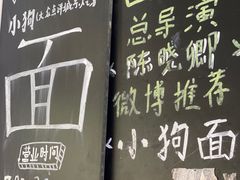 小狗
面
营业时间
总导演
陈晓卿
微博推荐
小狗面